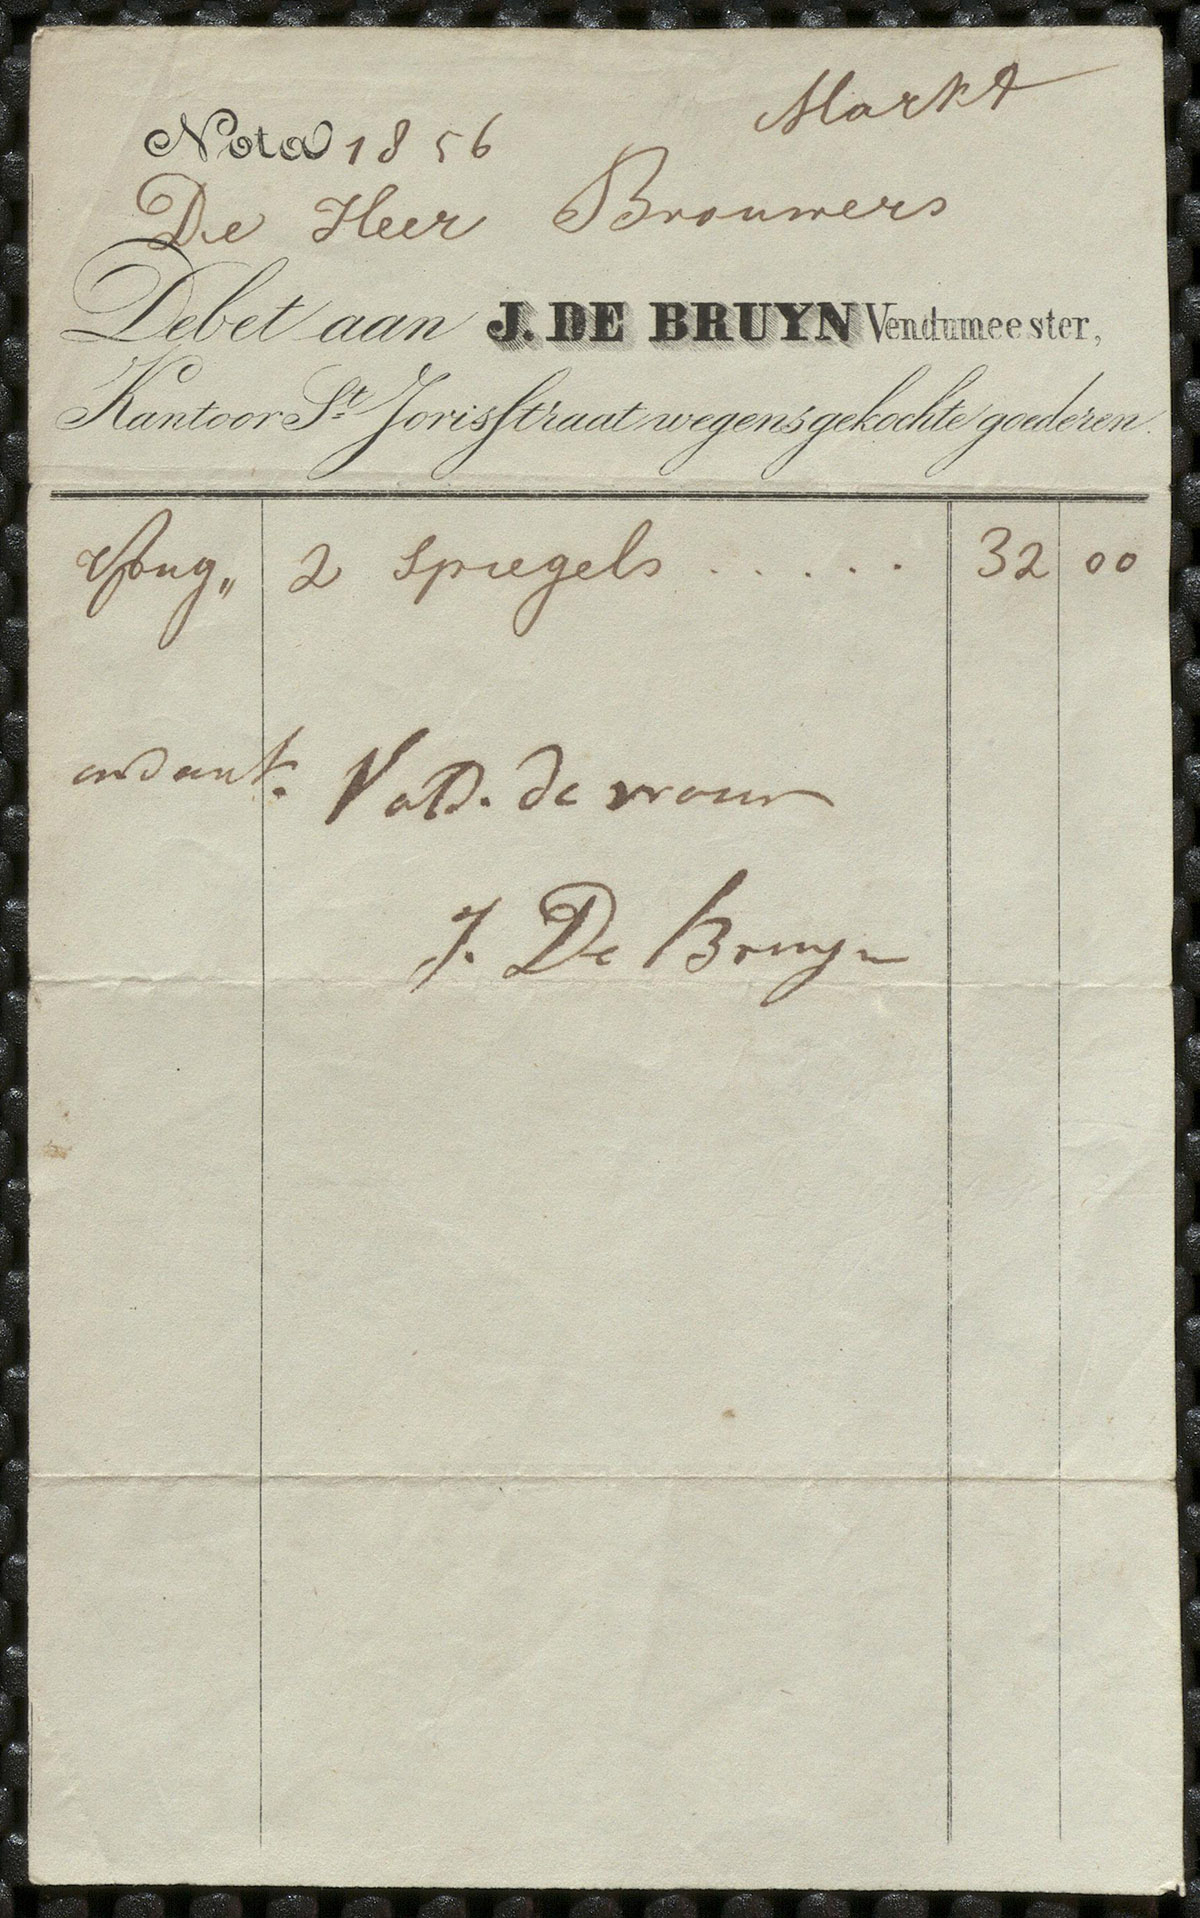 Markt
Nota 1856
De Heer Brouwers
Debet aan J. DE BRUYN Vendumeester,
Kantoor St. Jorisstraat wegens gekochte goederen.
2 spiegels . . . . . 32 00
J. De Bruyn